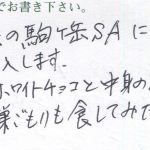 でお書き下さい。
の駒ヶ岳SAに
入します。
ホワイトチョコと中身の
巣ごもりも食してみた